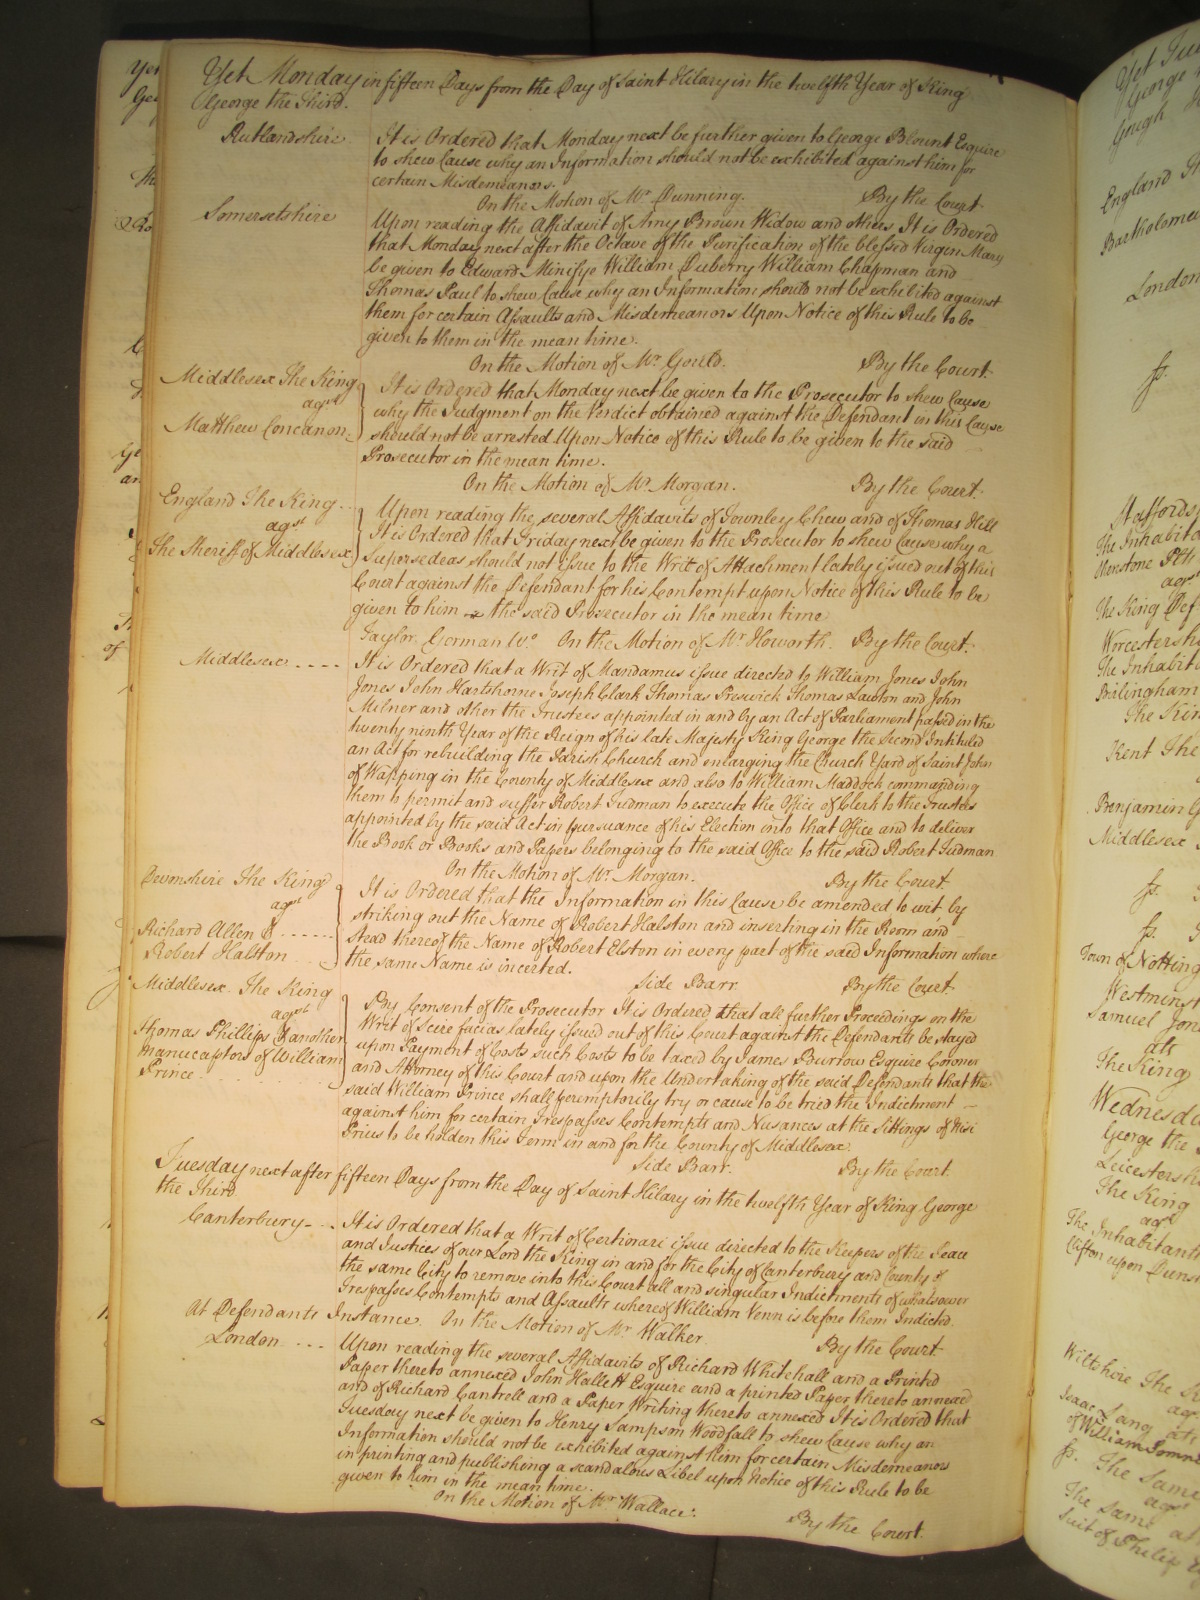 Yet Monday in fifteen Days from the Day of Saint Hilary in the twelfth Year of King
George the Third.
Rutlandshire
It is Ordered that Monday next be further given to George Blount Esquire
to shew Cause why an Information should not be exhibited against him for
certain Misdemeanors.
On the Motion of Mr. Dunning. By the Court.
Somersetshire
Upon reading the Affidavit of Amy Brown Widow and others It is Ordered
that Monday next after the Octave of the Purification of the blessed Virgin Mary
be given to Edward Minifye William Duberry William Chapman and
Thomas Paul to shew Cause why an Information should not be exhibited against
them for certain Assaults and Misdemeanors Upon Notice of this Rule to be
given to them in the mean time.
On the Motion of Mr. Gould. By the Court.
Middlesex The King
agst
Matthew Concanon.
It is Ordered that Monday next be given to the Prosecutor to shew Cause
why the Judgment on the Verdict obtained against the Defendant in this Cause
should not be arrested Upon Notice of this Rule to be given to the said
Prosecutor in the mean time.
On the Motion of Mr. Morgan. By the Court.
England The King
agst
The Sheriff of Middlesex
Upon reading the several Affidavits of Townley Chew and of Thomas Hill
It is Ordered that Friday next be given to the Prosecutor to shew Cause why a
Supersedeas should not issue to the Writ of Attachment lately issued out of this
Court against the Defendant for his Contempt upon Notice of this Rule to be
given to him the said Prosecutor in the mean time
Taylor On the Motion of Mr. Howorth. By the Court.
Middlesex
It is Ordered that a Writ of Mandamus issue directed to William Jones John
Jones John Hartshorne Joseph Clark Thomas Preswick Thomas Lawton and John
Milner and other the Trustees appointed in and by an Act of Parliament passed in the
twenty ninth Year of the Reign of his late Majesty King George the Second Intituled
an Act for rebuilding the Parish Church and enlarging the Church Yard of Saint John
of Wapping in the County of Middlesex and also to William Maddock commanding
them to permit and suffer Robert Tudman to execute the Office of Clerk to the Trustees
appointed by the said Act in pursuance of his Election into that Office and to deliver
the Book or Books and Papers belonging to the said Office to the said Robert Tudman
On the Motion of Mr. Morgan. By the Court
Devonshire The King
agst
Richard Allen &
Robert Halston
It is Ordered that the Information in this Cause be amended to wit by
striking out the Name of Robert Halston and inserting in the Room and
stead thereof the Name of Robert Elston in every part of the said Information where
the same Name is incerted.
Side Barr. By the Court.
Middlesex. The King
agst
Thomas Phillips & another
manucaptors of William
Prince
By Consent of the Prosecutor It is Ordered that all further Proceedings on the
Writ of Scire facias lately issued out of this Court against the Defendants be stayed
upon Payment of Costs such Costs to be taxed by James Burrow Esquire Coroner
and Attorney of this Court and upon the Undertaking of the said Defendants that the
said William Prince shall peremptorily try or cause to be tried the Indictment
against him for certain Trespasses Contempts and Nusances at the Sittings of Nisi
Prius to be holden this Term in and for the County of Middlesex.
Side Barr. By the Court.
Tuesday next after fifteen Days from the Day of Saint Hilary in the twelfth Year of King George
the Third.
Canterbury
It is Ordered that a Writ of Certiorari issue directed to the Keepers of the Peace
and Justices of our Lord the King in and for the City of Canterbury and County of
the same City to remove into this Court all and singular Indictments of whatsoever
Trespasses Contempts and Assaults whereof William Venn is before them Indicted.
At Defendants Instance. On the Motion of Mr. Walker By the Court
London
Upon reading the several Affidavits of Richard Whitehall and a Printed
Paper thereto annexed John Hallett Esquire and a printed Paper thereto annexed
and of Richard Cantrell and a Paper Writing thereto annexed It is Ordered that
Tuesday next be given to Henry Sampson Woodfall to shew Cause why an
Information should not be exhibited against him for certain Misdemeanors
in printing and publishing a scandalous Libel upon Notice of this Rule to be
given to him in the mean time.
On the Motion of Mr. Wallace. By the Court.
George
Gough
England
Bartholomew
London
The Inhabita
agst
The King Def
Worcestersh
The Inhabit
The Kin
Kent The
Benjamin
Middlesex
Town of Notting
Westminst
Samuel Jon
ats
The King
Wednesda
George the
Leicestersh
The King
agst
The Inhabitants
Clifton upon Duns
Wiltshire The
Isaac Lang
of William
The Same
The Same
Suit of Philip